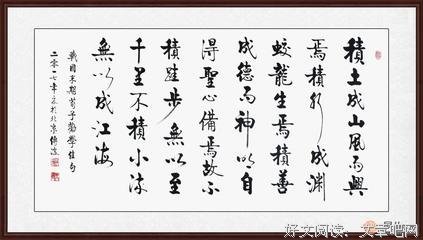 積土成山風雨興
焉積水成淵
蛟龍生焉積善
成德而神明自
得聖心備焉故不
積跬步無以至
千里不積小流
無以成江海
戰國末期荀子勸學佳句
二零一七年於北京
好文阅读：文章吧网